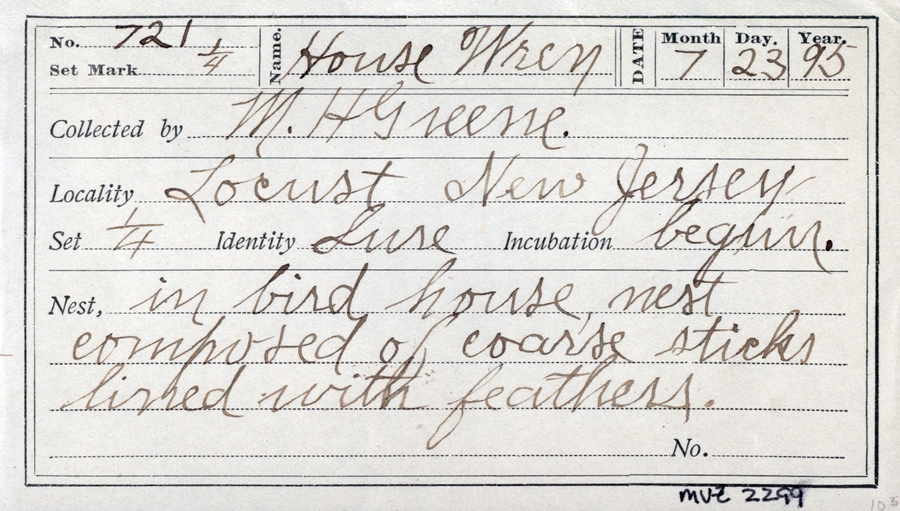 No. 721
Set Mark 1/4
Name. House Wren
DATE Month 7 Day. 23 Year. 95
Collected by M. H Greene.
Locality Locust New Jersey
Set 1/4 Identity Sure Incubation begun.
Nest, in bird house, nest
composed of coarse sticks
lined with feathers.
No.
MVZ 2299